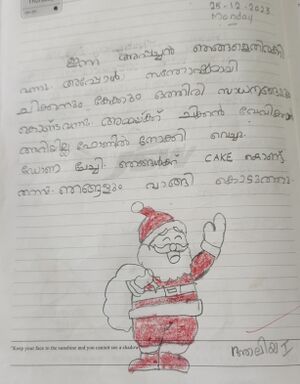 25-12-2023
Monday
ഇന്ന് അപ്പച്ചൻ ഞങ്ങളെ
വന്നു. അപ്പോൾ സന്തോഷമായി
ചിക്കനും കേക്കും ഒത്തിരി സാധനങ്ങളും
കൊണ്ടുവന്നു. അമ്മയ്ക്ക് ചിക്കൻ
അറിയില്ല ഫോണിൽ നോക്കി വെച്ചു.
ഡോണ ചേച്ചി ഞങ്ങൾക്ക് CAKE കൊണ്ട്
തന്നു. ഞങ്ങളും വാങ്ങി കൊടുത്തു.
"Keep your face to the sunshine and you cannot see a shadow